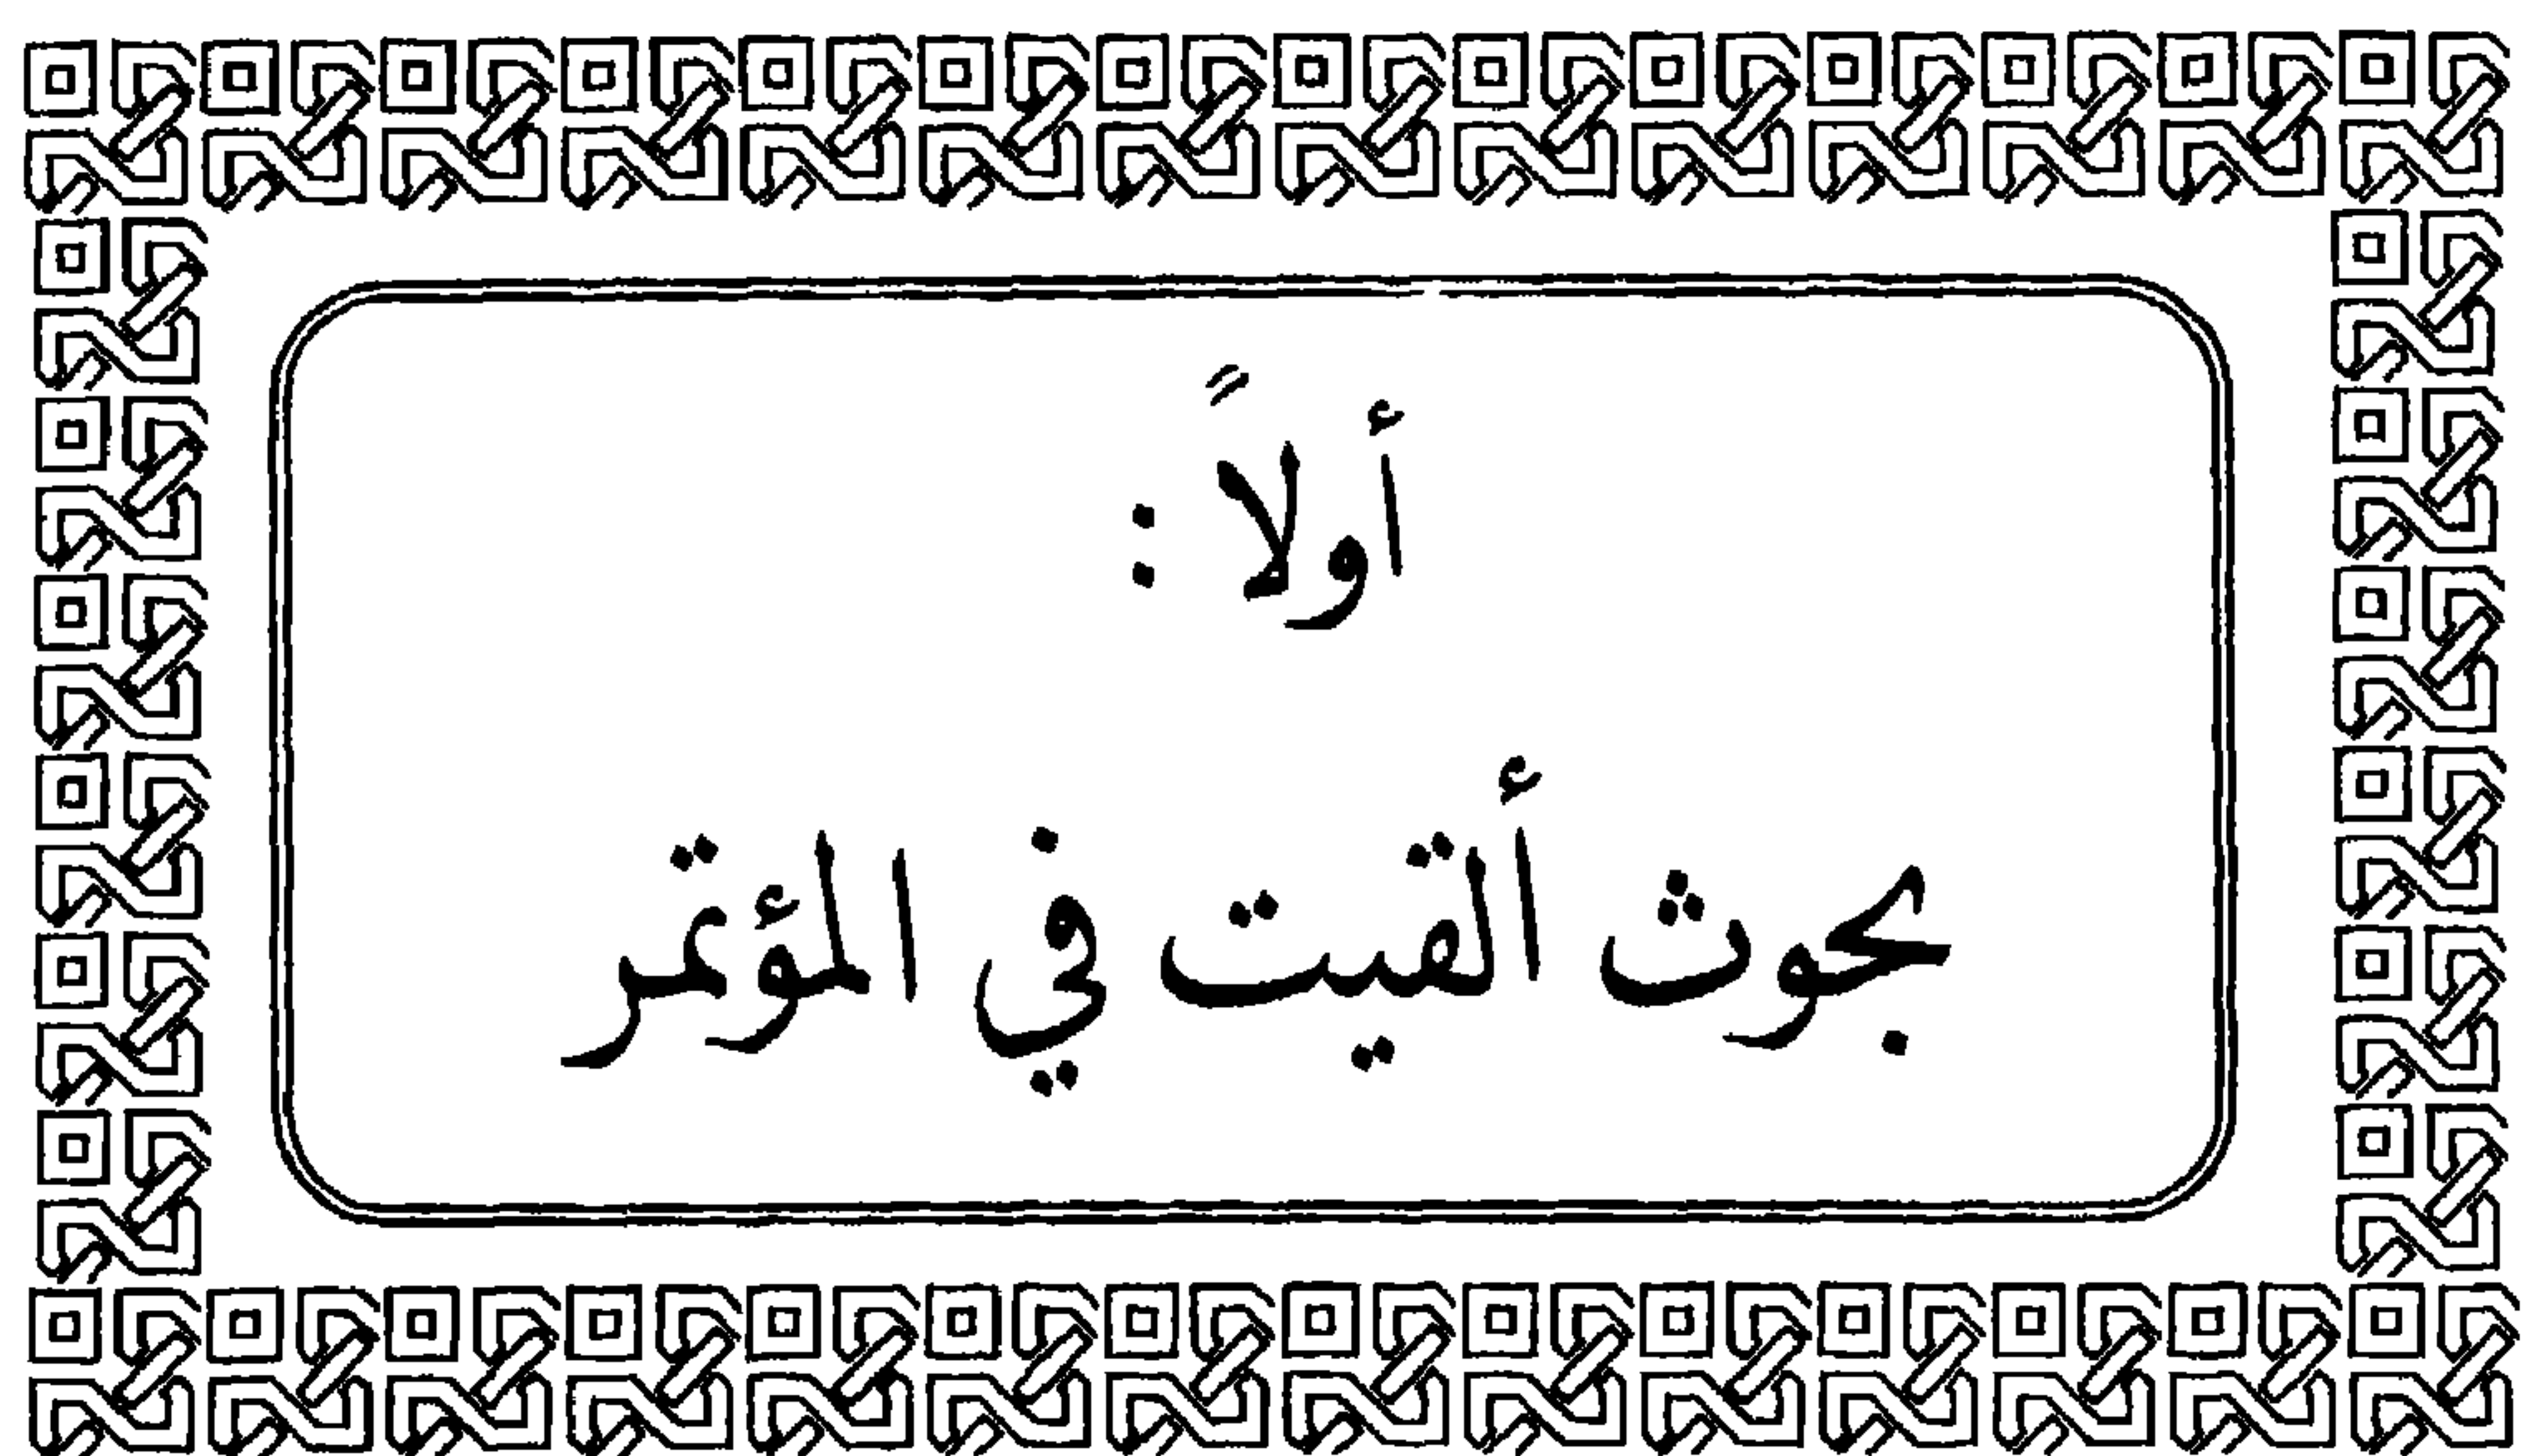 أولاً :
بحوث ألقيت في المؤتمر